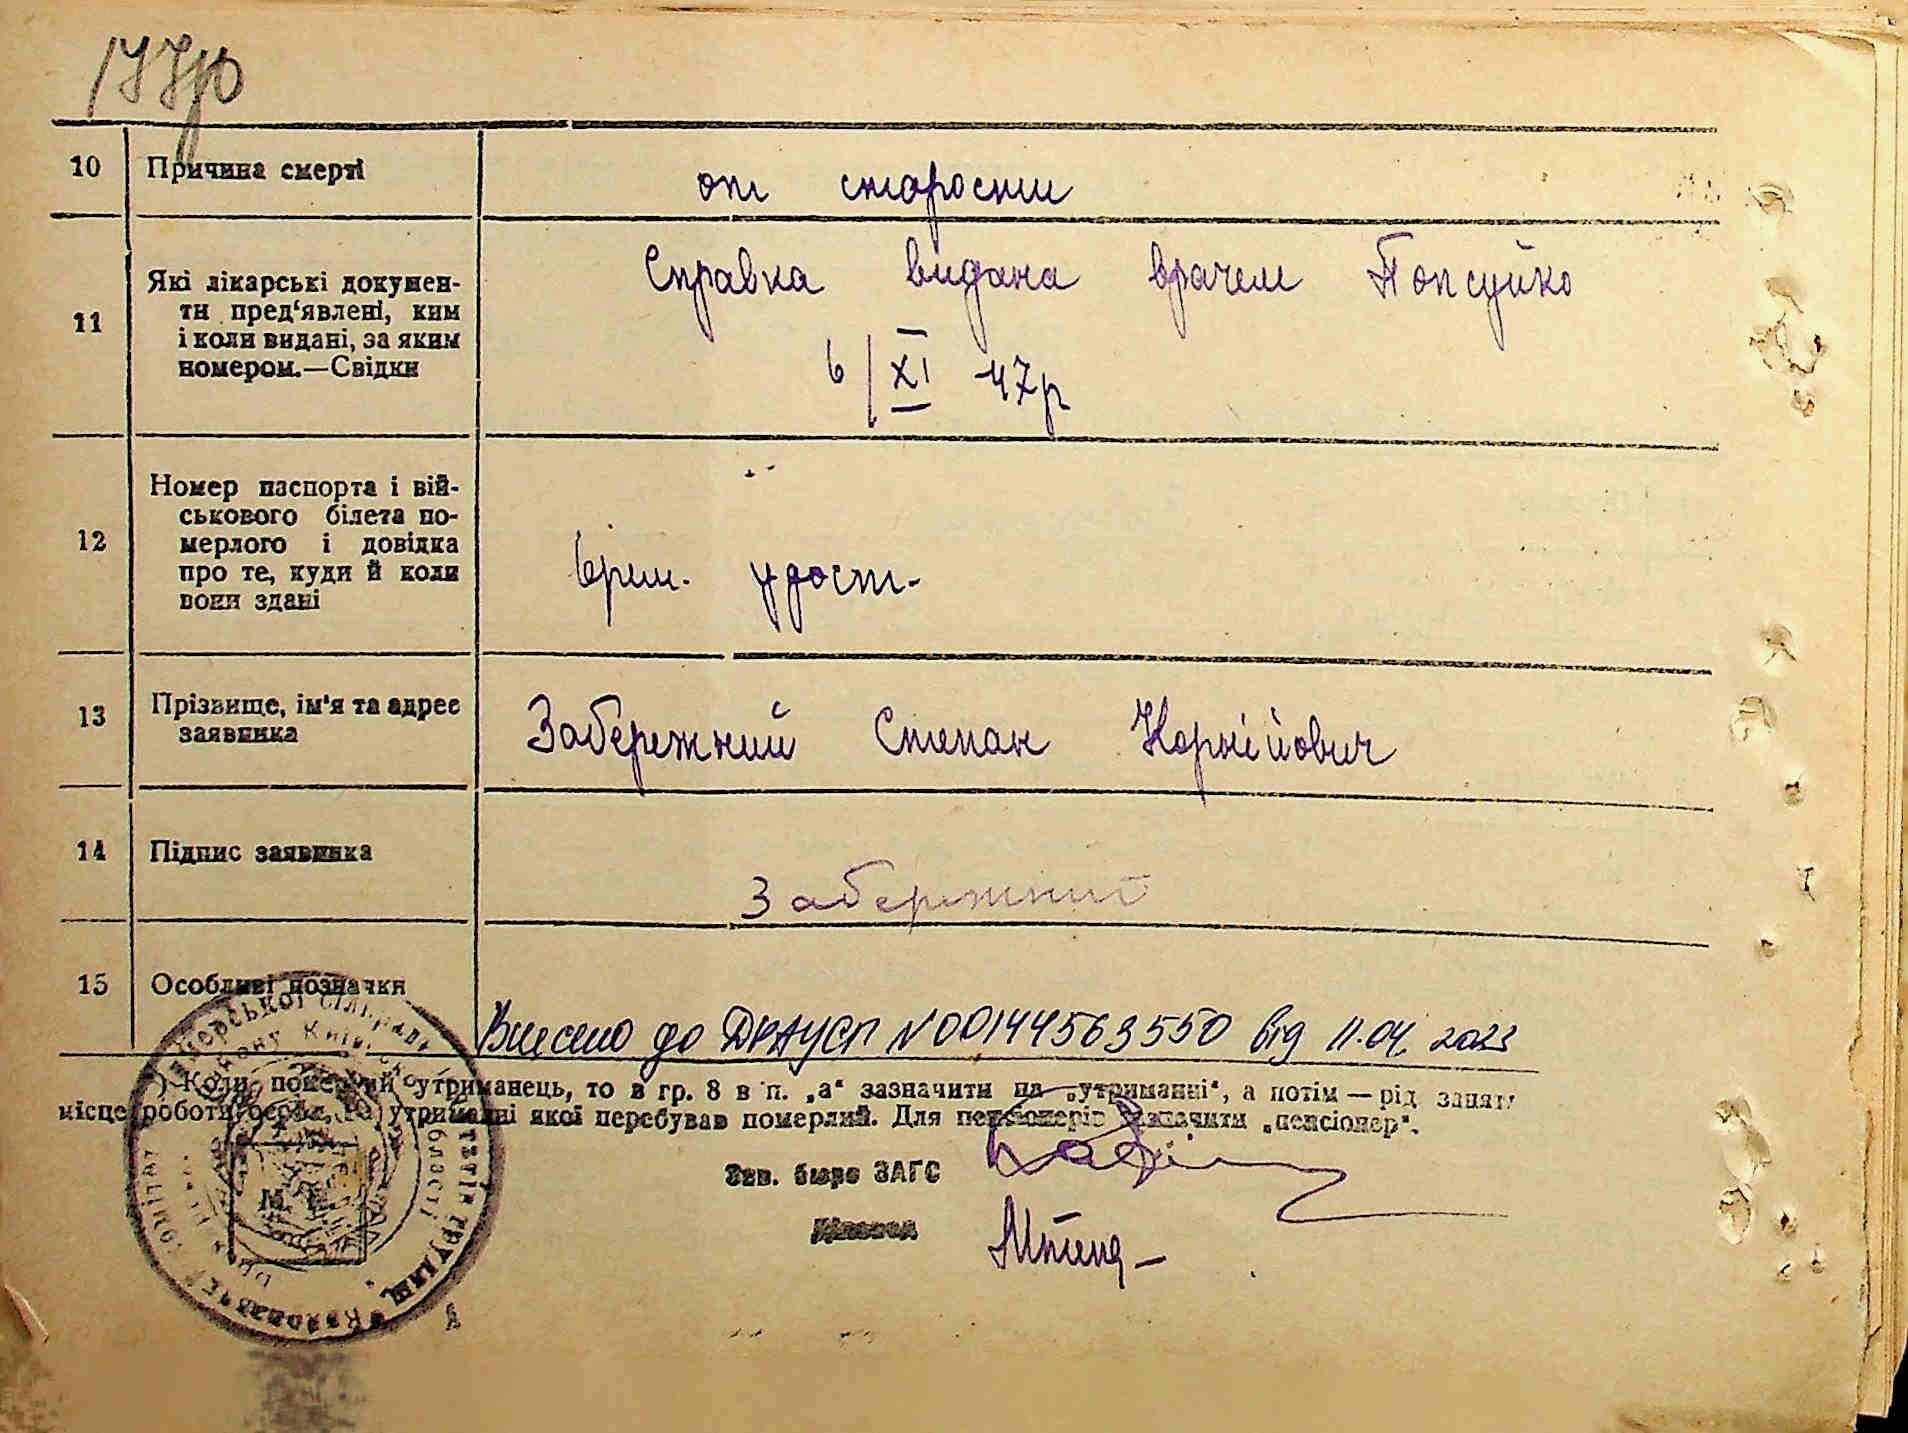 10 Причина смерті от старости
11 Які лікарські докумен-
ти пред'явлені, ким
і коли видані, за яким
номером.—Свідки
Справка видана врачем Попсуйко
6/XI 47р
12 Номер паспорта і вій-
ськового білета по-
мерлого і довідка
про те, куди й коли
вони здані
врем. удост-
13 Прізвище, ім'я та адрес
заявника
Забережний Степан Корнійович
14 Підпис заявника
Забережний
15 Особливі позначки
Внесено до ДРАЦСГ N00144563550 від 11.04.2023
) Коли померлий утриманець, то в гр. 8 в п. „а“ зазначити на „утриманні“, а потім — рід занять
місце роботи особи, на утриманні якої перебував померлий. Для пенсіонерів зазначити „пенсіонер“.
Зав. бюро ЗАГС
Діловод